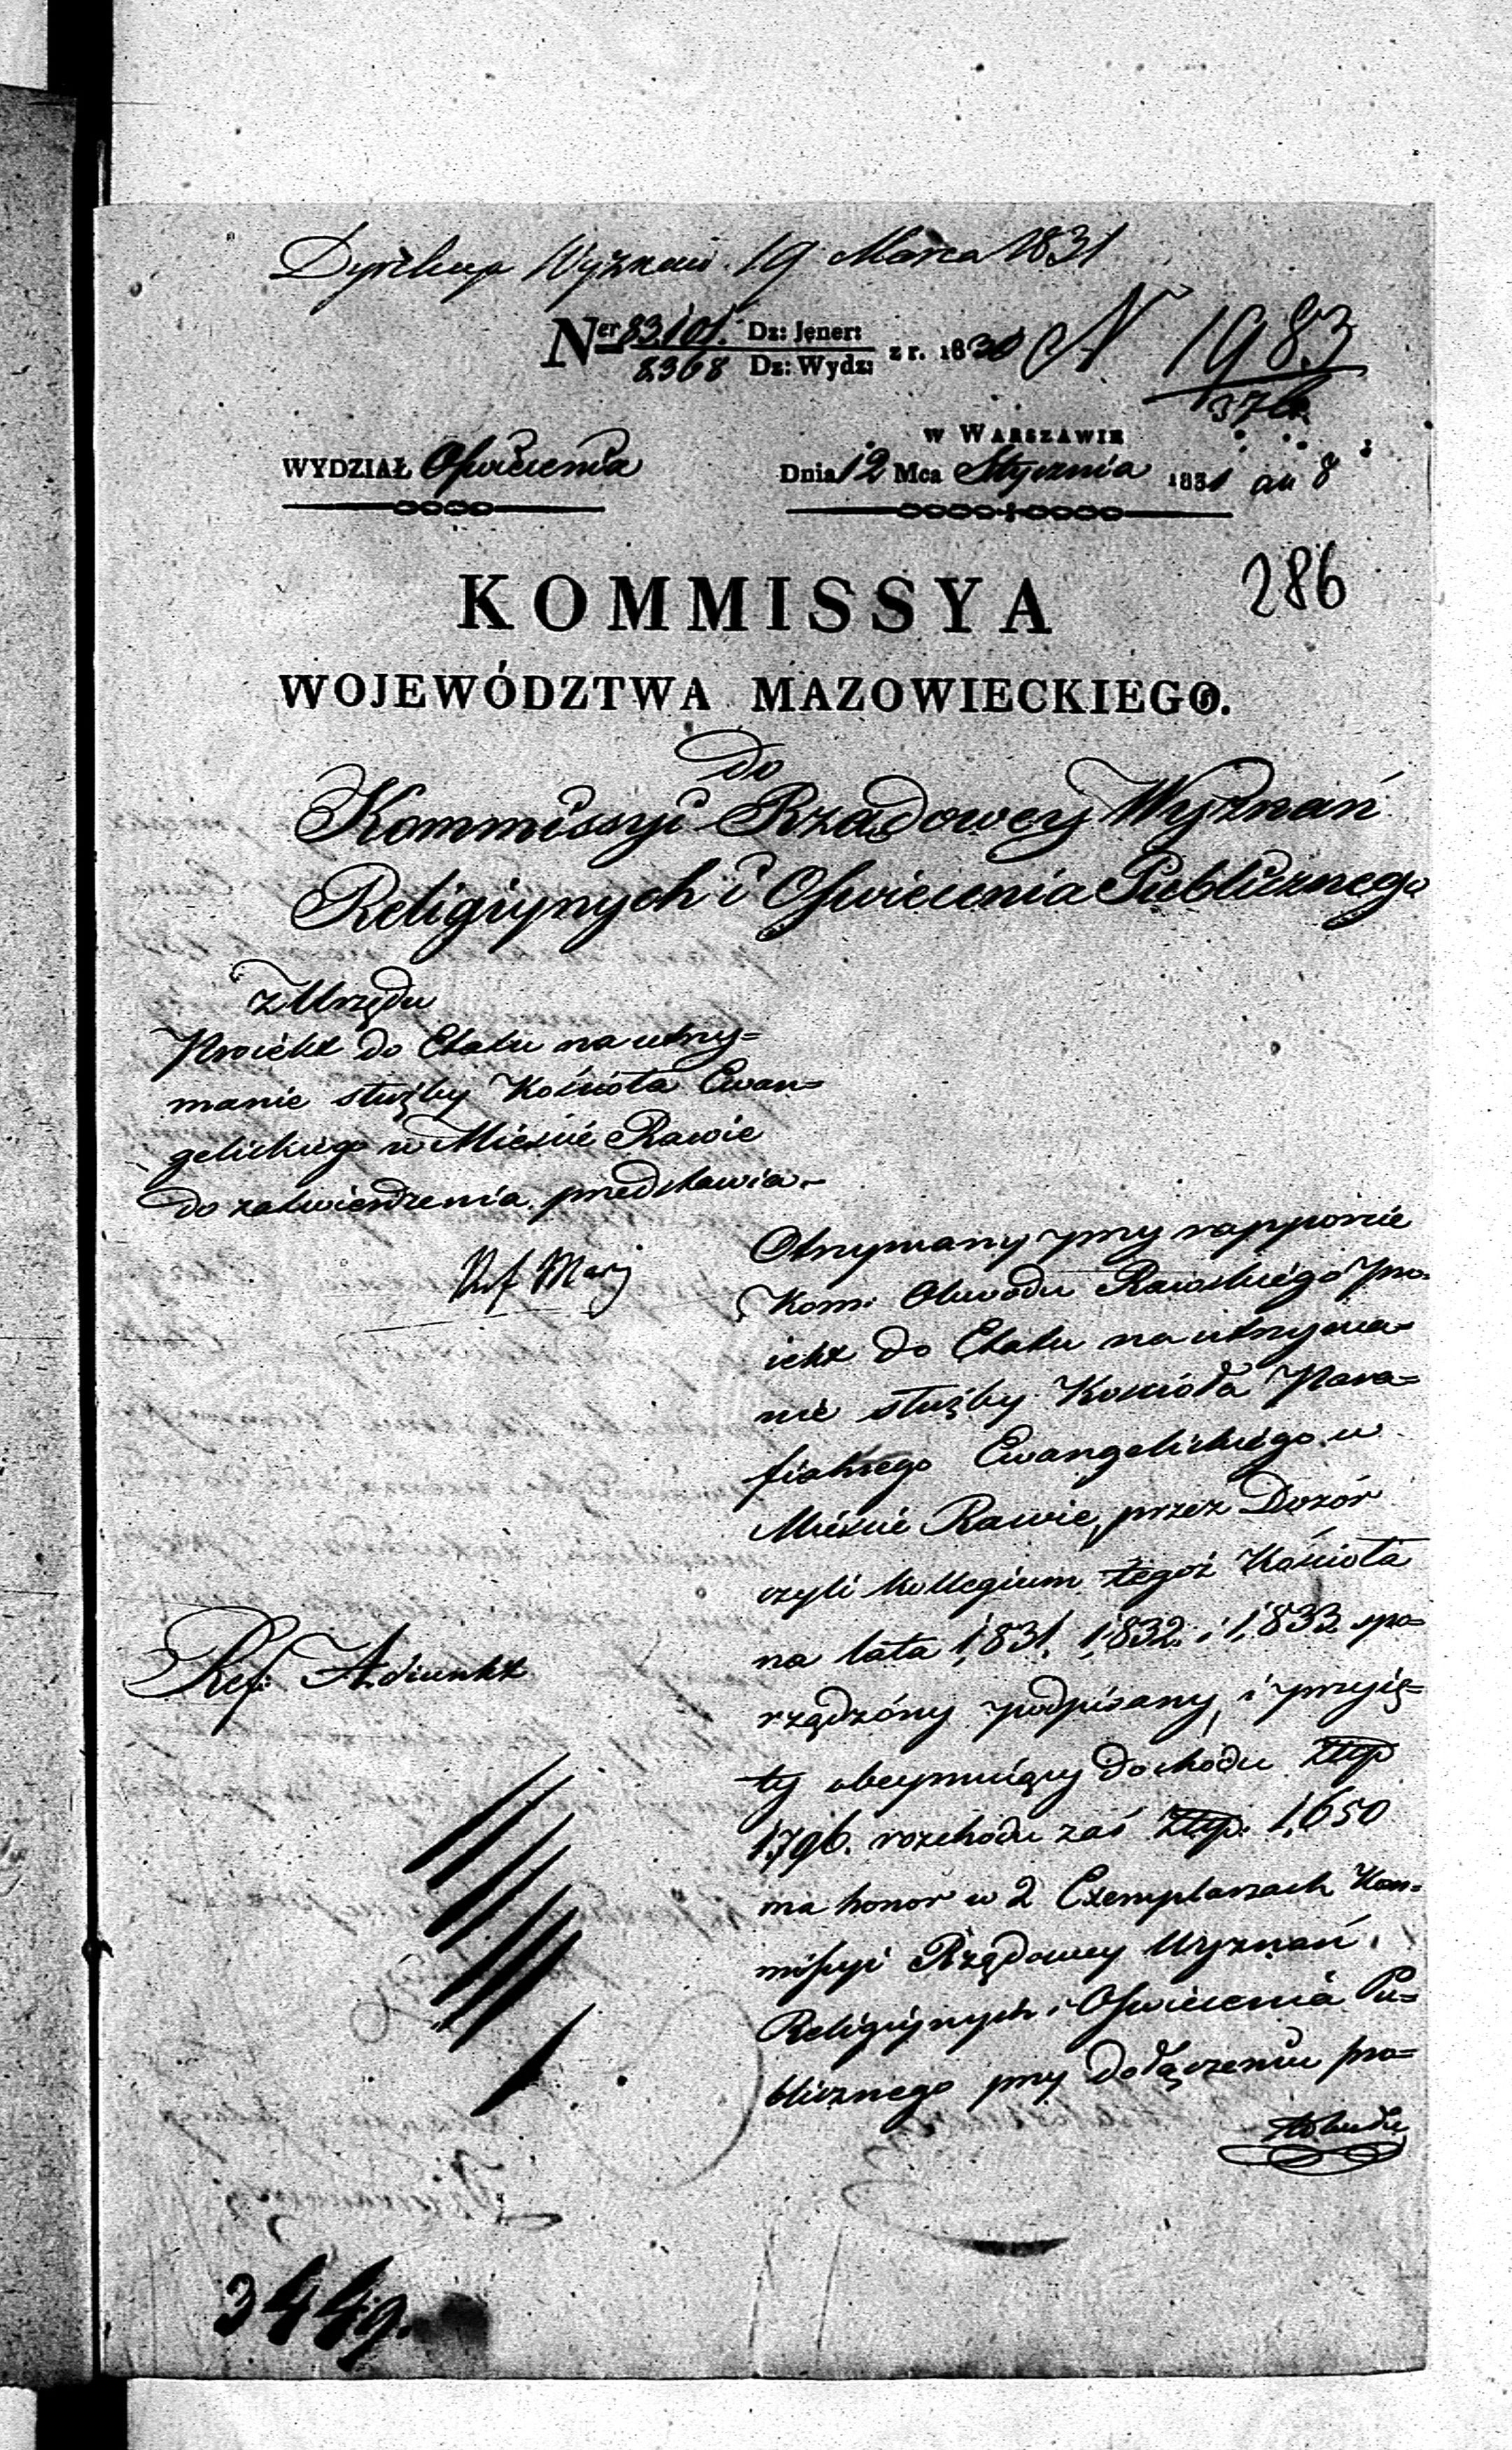 Dyrekcya Wyznań 19 Marca 1831
Ner 83,101. Dz: Jener: z r. 1830 N 1983
8368 Dz: Wydz:
w WARSZAWIE
WYDZIAŁ Oświecenia Dnia 12 Mca Stycznia 1831
286
KOMMISSYA
WOJEWÓDZTWA MAZOWIECKIEGO.
do
Kommissyi Rządowey Wyznań
Religiynych i Oświecenia Publicznego
z Urzędu
Proiekt do Etatu na utrzy=
manie służby Kościoła Ewan=
gelickiego w Mieście Rawie
do zatwierdzenia przedstawia.
Otrzymany przy rapporcie
Kom: Obwodu Rawskiego pro=
iekt do Etatu na utrzyma=
nie służby Kościoła Para=
fialnego Ewangelickiego w
Mieście Rawie, przez Dozór
czyli Kollegium tegoż Kościoła
na lata 1,831. 1,832. i 1,833 spo=
rządzóny podpisany, i przyię=
ty obeymuiący dochodu Złtp
1,796. rozchodu zaś Złtp. 1,650
ma honor w 2 Exemplarzach Kom=
missyi Rządowey Wyznań
Religiynych i Oświecenia Pu=
blicznego przy dołączeniu pro=
tokułu
Ref: Adiunkt
3449.